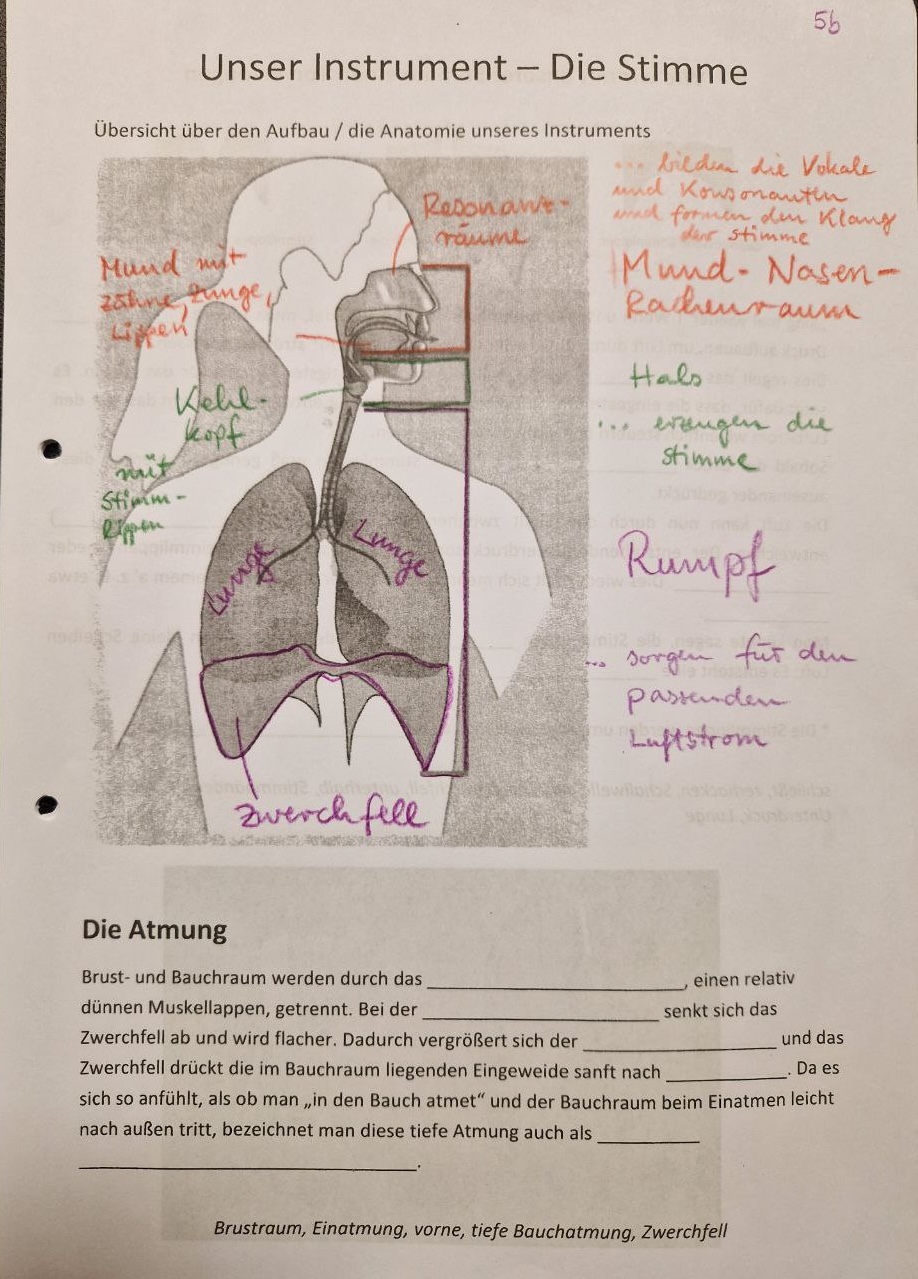 5b
Unser Instrument – Die Stimme
Übersicht über den Aufbau / die Anatomie unseres Instruments
... bilden die Vokale
und Konsonanten
und formen den Klang
der Stimme
Resonanz-
räume
Mund mit
Zähne, Zunge,
Lippen
Mund- Nasen-
Rachenraum
Kehl-
kopf
mit
Stimm-
lippen
Hals
... erzeugen die
Stimme
Lunge
Lunge
Rumpf
... sorgen für den
passenden
Luftstrom
Zwerchfell
Die Atmung
Brust- und Bauchraum werden durch das ____________________, einen relativ
dünnen Muskellappen, getrennt. Bei der ____________________ senkt sich das
Zwerchfell ab und wird flacher. Dadurch vergrößert sich der ________________ und das
Zwerchfell drückt die im Bauchraum liegenden Eingeweide sanft nach __________. Da es
sich so anfühlt, als ob man „in den Bauch atmet“ und der Bauchraum beim Einatmen leicht
nach außen tritt, bezeichnet man diese tiefe Atmung auch als _________
____________________________.
Brustraum, Einatmung, vorne, tiefe Bauchatmung, Zwerchfell